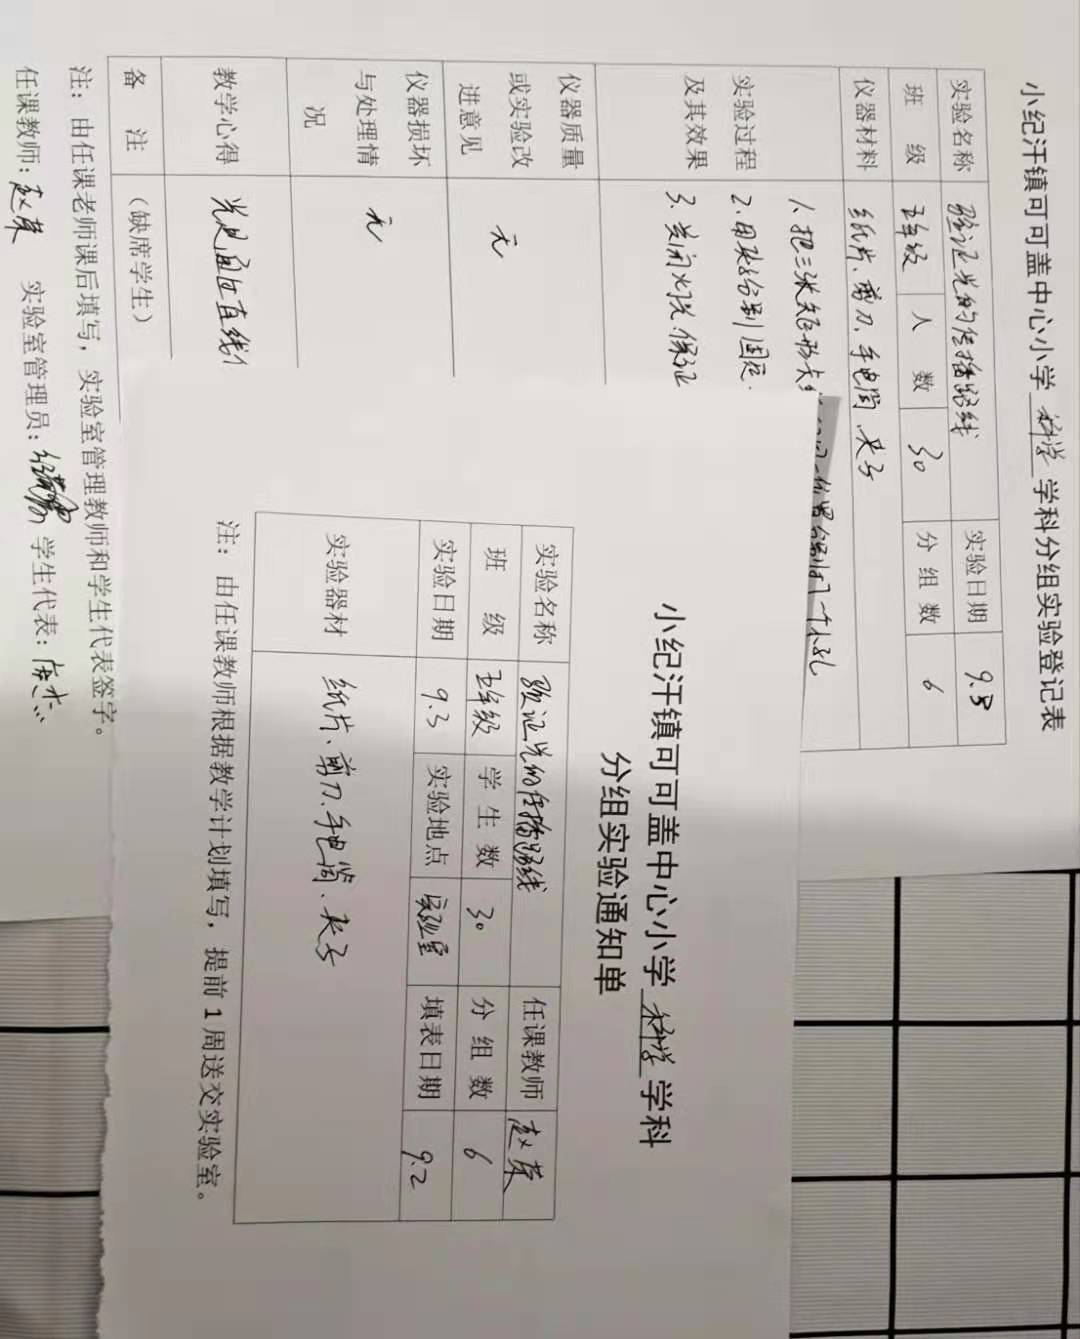 小纪汗镇可可盖中心小学 科学 学科分组实验登记表
实验名称 验证光的传播路线 实验日期 9.3
班 级 五年级 人 数 30 分 组 数 6
仪器材料 纸片、剪刀、手电筒、夹子
实验过程
及其效果
1、把三张矩形卡 一个小孔
2、用夹子分别固定
3、关闭灯光、保证
仪器质量
或实验改
进意见
无
仪器损坏
与处理情
况
无
教学心得 光是通过直线
备 注 （缺席学生）
注：由任课老师课后填写，实验室管理教师和学生代表签字。
任课教师：赵荣 实验室管理员： 学生代表：
小纪汗镇可可盖中心小学 科学 学科
分组实验通知单
实验名称 验证光的传播路线 任课教师 赵荣
班 级 五年级 学 生 数 30 分 组 数 6
实验日期 9.3 实验地点 实验室 填表日期 9.2
实验器材 纸片、剪刀、手电筒、夹子
注：由任课教师根据教学计划填写，提前 1 周送交实验室。